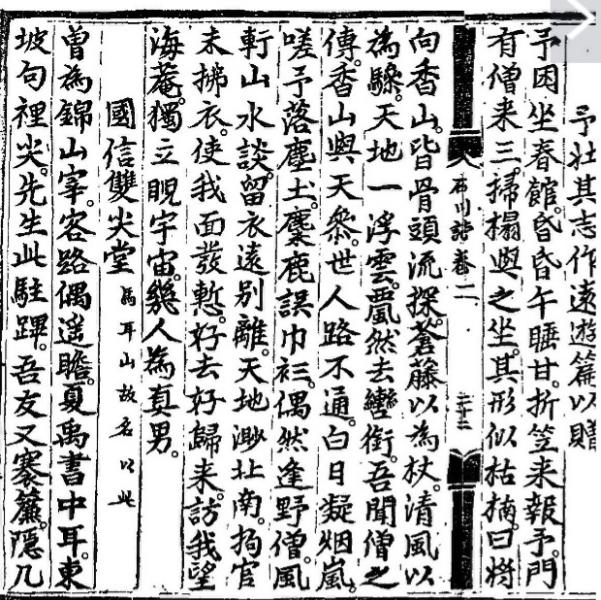 予壯其志作遠遊篇以贈
予因坐春館。昏昏午睡甘。折笠来報予。門
有僧来三。掃榻與之坐。其形似枯楠。曰將
石川詩卷二 二十二
向香山。皆骨頭流探。蒼藤以為杖。清風以
為驂。天地一浮雲。飄然去轡銜。吾聞僧之
傳。香山與天叅。世人路不通。白日凝烟嵐。
嗟予落塵土。麋鹿誤巾衫。偶然逢野僧。風
軒山水談。留衣遠别離。天地渺北南。拘官
未拂衣。使我面發慙。好去好歸来。訪我望
海菴。獨立睨宇宙。幾人為真男。
國信雙尖堂 馬耳山故名以此
曽為錦山宰。客路偶遥瞻。夏禹書中耳。東
坡句裡尖。先生此駐蹕。吾友又褰簾。隱几